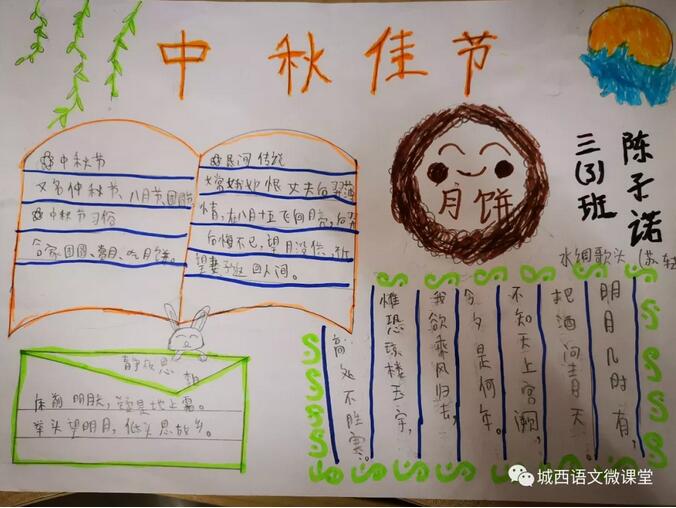 中秋佳节
三(3)班
陈子诺
中秋节
又名仲秋节、八月节、团圆
中秋节习俗
合家团圆、赏月、吃月饼。
民间传说
嫦娥妒恨丈夫后羿薄
情,在八月十五飞向月亮,后羿
后悔不已,望月设供,祈
望妻子返回人间。
月饼
静夜思
床前明月光,疑是地上霜。
举头望明月,低头思故乡。
水调歌头(苏轼
明月几时有,
把酒问青天
不知天上宫阙,
今夕是何年。
我欲乘风归去,
惟恐琼楼玉宇,
高处不胜寒。
城西语文微课堂